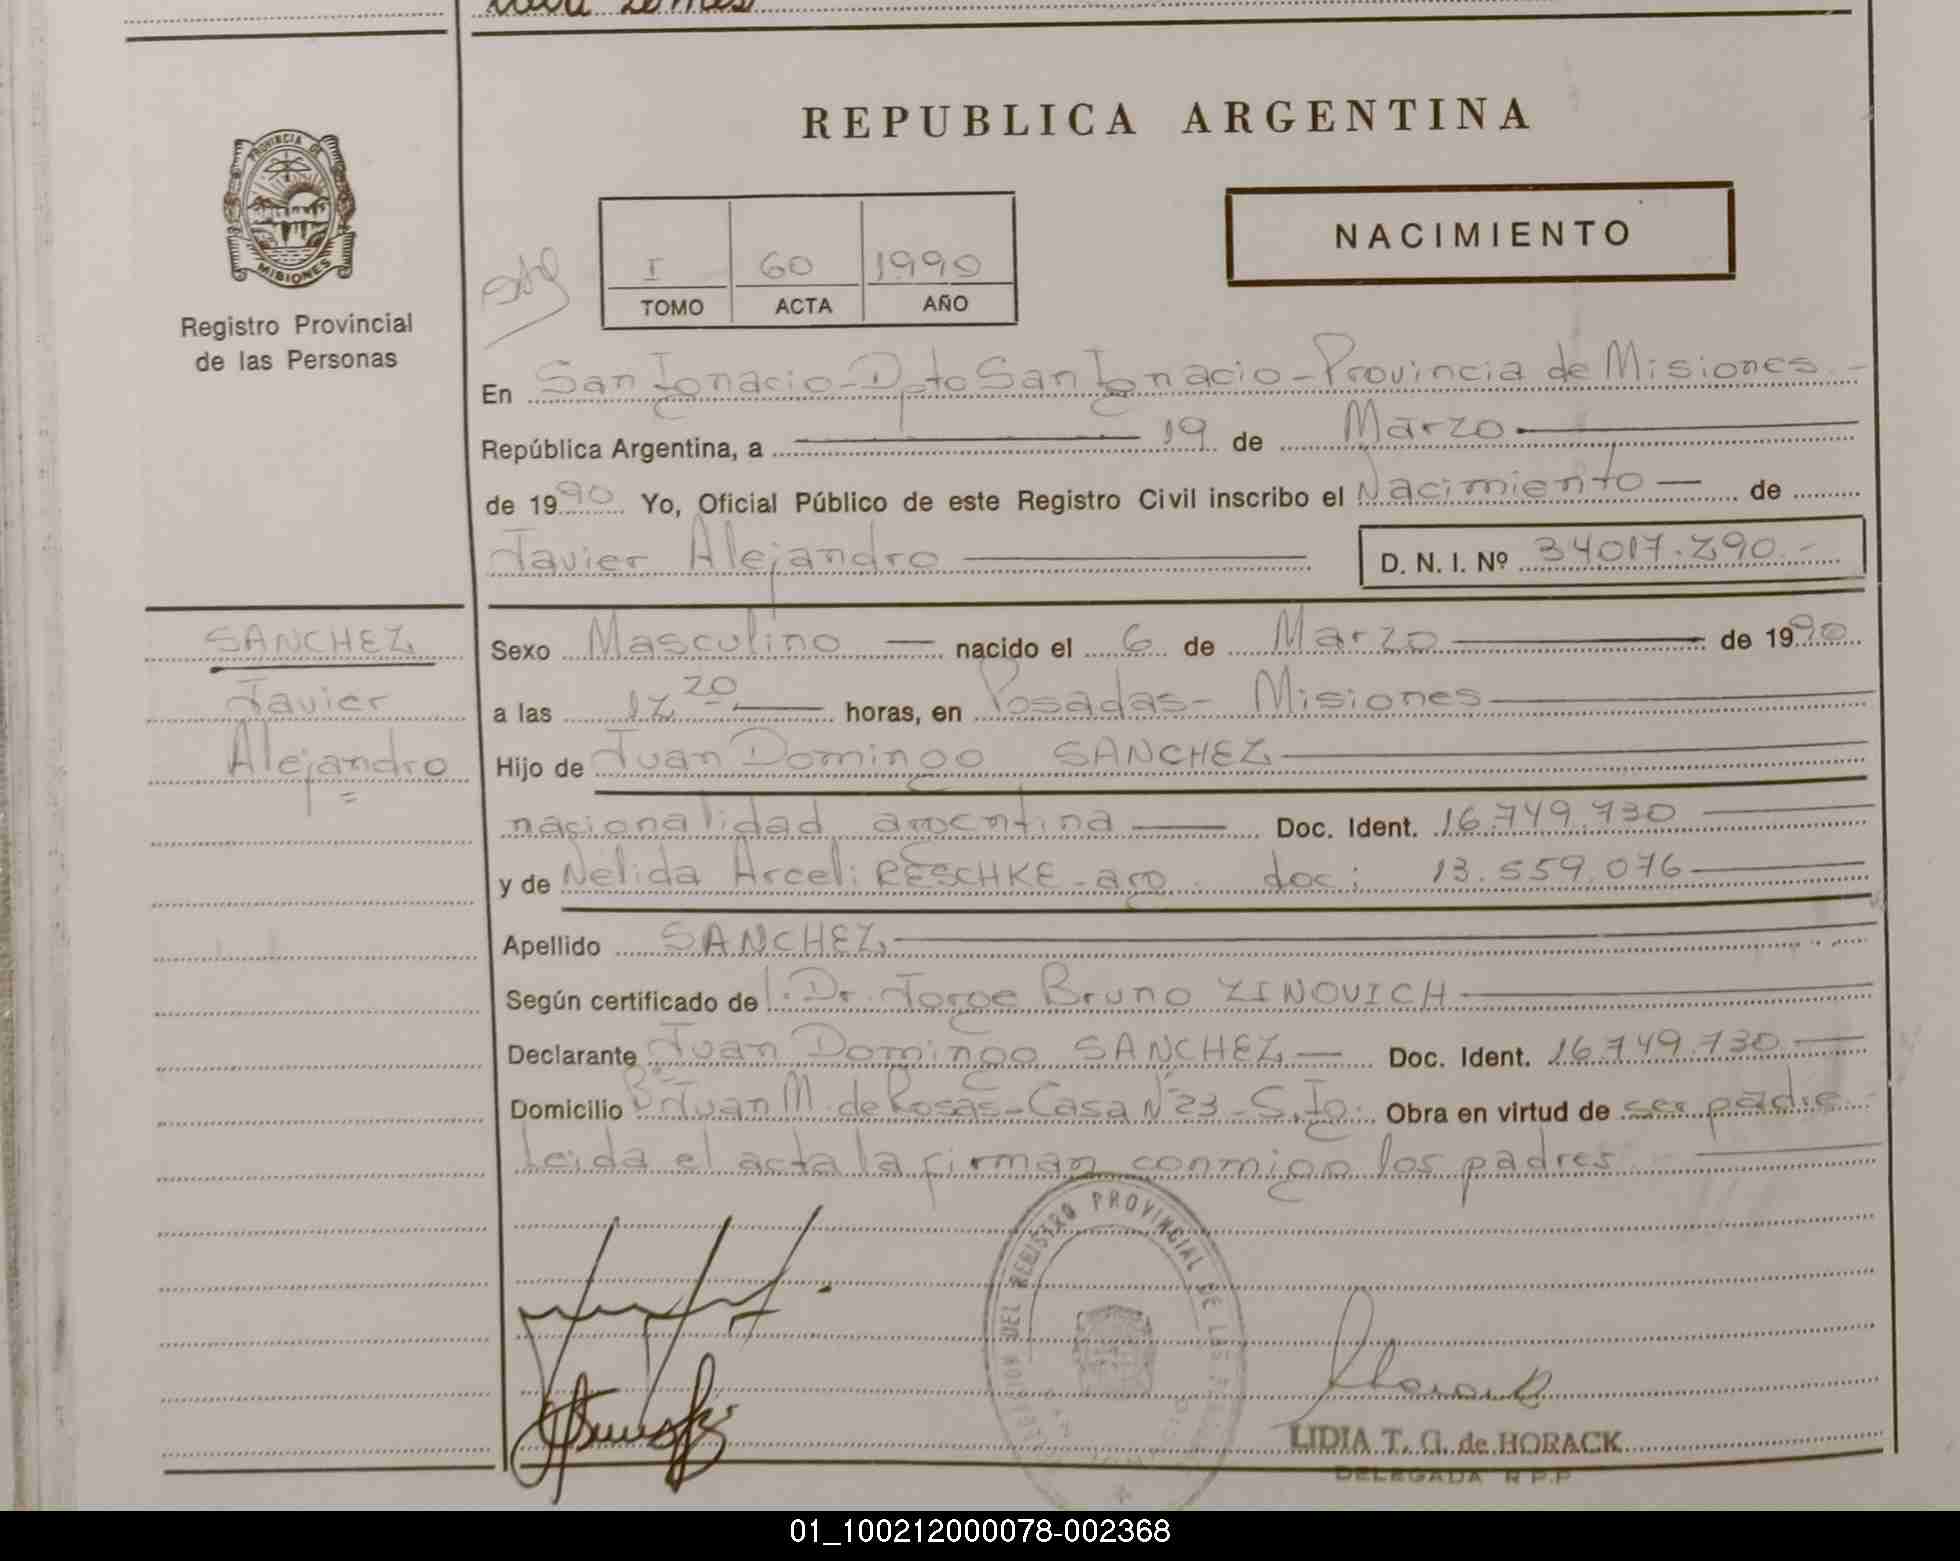 REPUBLICA ARGENTINA
PROVINCIA DE
MISIONES
Registro Provincial
de las Personas
NACIMIENTO
I 60 1990
TOMO ACTA AÑO
En San Ignacio - Dpto San Ignacio - Provincia de Misiones -
República Argentina, a 19 de Marzo
de 1990 Yo, Oficial Público de este Registro Civil inscribo el Nacimiento - de
Javier Alejandro D. N. I. Nº 34017.290.-
SANCHEZ
Javier
Alejandro
Sexo Masculino nacido el 6 de Marzo de 1990
a las 12 20 horas, en Posadas - Misiones
Hijo de Juan Domingo SANCHEZ
nacionalidad argentina Doc. Ident. 16.749.730
y de Nelida Arceli RESCHKE - arg. doc: 13.559.076
Apellido SANCHEZ
Según certificado de l. Dr. Jorge Bruno ZINOVICH
Declarante Juan Domingo SANCHEZ Doc. Ident. 16.749.730
Domicilio Bº Juan M. de Rosas - Casa Nº 23 - S. Ig. Obra en virtud de ser padre
Leida el acta la firman conmigo los padres
DEL REGISTRO PROVINCIAL DE LAS
LIDIA T. G. de HORACK
DELEGADA R.P.P
01_100212000078-002368